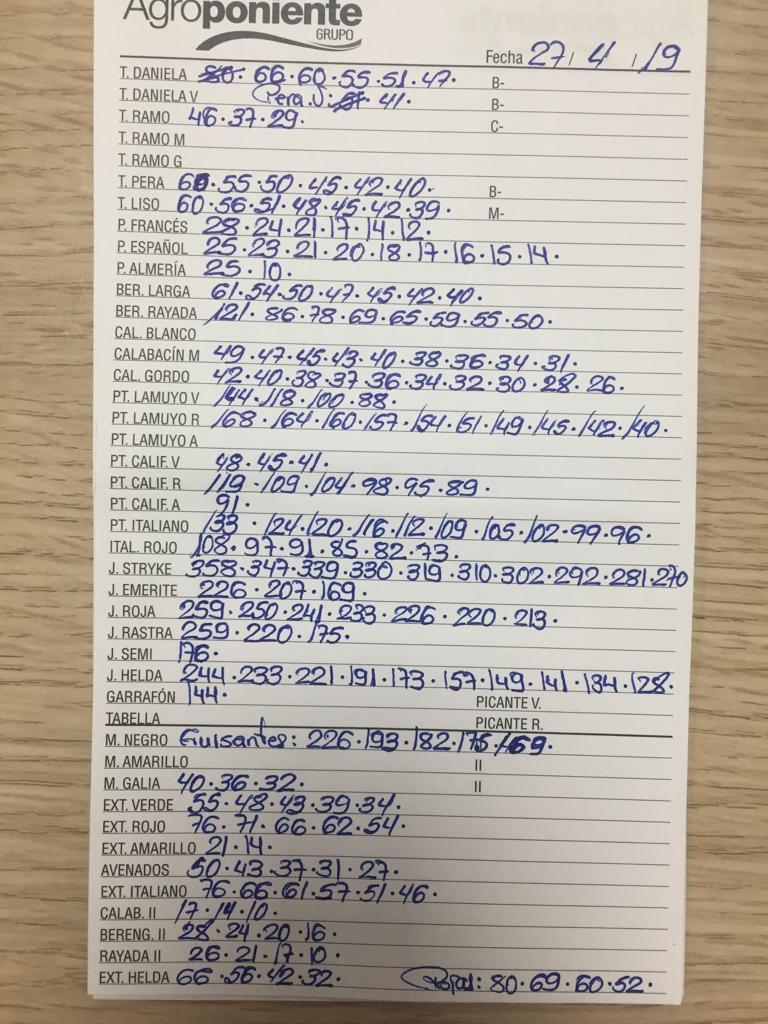 Agroponiente
GRUPO
Fecha 27 / 4 / 19
T. DANIELA 80. 66.60.55.51.47. B-
T. DANIELA V Pera V: 41. B-
T. RAMO 46.37.29. C-
T. RAMO M
T. RAMO G
T. PERA 60.55.50.45.42.40. B-
T. LISO 60.56.51.48.45.42.39. M-
P. FRANCÉS 28.24.21.17.14.12.
P. ESPAÑOL 25.23.21.20.18.17.16.15.14.
P. ALMERÍA 25.10.
BER. LARGA 61.54.50.47.45.42.40.
BER. RAYADA 121. 86.78.69.65.59.55.50.
CAL. BLANCO
CALABACÍN M 49.47.45.43.40.38.36.34.31.
CAL. GORDO 42.40.38.37.36.34.32.30.28.26.
PT. LAMUYO V 144.118.100.88.
PT. LAMUYO R 168.164.160.157.154.151.149.145.142.140.
PT. LAMUYO A
PT. CALIF. V 48.45.41.
PT. CALIF. R 119.109.104.98.95.89.
PT. CALIF. A 91.
PT. ITALIANO 133.124.120.116.112.109.105.102.99.96.
ITAL. ROJO 108.97.91.85.82.73.
J. STRYKE 358.347.339.330.319.310.302.292.281.270
J. EMERITE 226.207.169.
J. ROJA 259.250.241.233.226.220.213.
J. RASTRA 259.220.175.
J. SEMI 176.
J. HELDA 244.233.221.191.173.157.149.141.134.128.
GARRAFÓN 144. PICANTE V.
TABELLA PICANTE R.
M. NEGRO Guisantes: 226.193.182.175.169.
M. AMARILLO II
M. GALIA 40.36.32. II
EXT. VERDE 55.48.43.39.34.
EXT. ROJO 76.71.66.62.54.
EXT. AMARILLO 21.14.
AVENADOS 50.43.37.31.27.
EXT. ITALIANO 76.66.61.57.51.46.
CALAB. II 17.14.10.
BERENG. II 28.24.20.16.
RAYADA II 26.21.17.10.
EXT. HELDA 66.56.42.32. Rojas: 80.69.60.52.